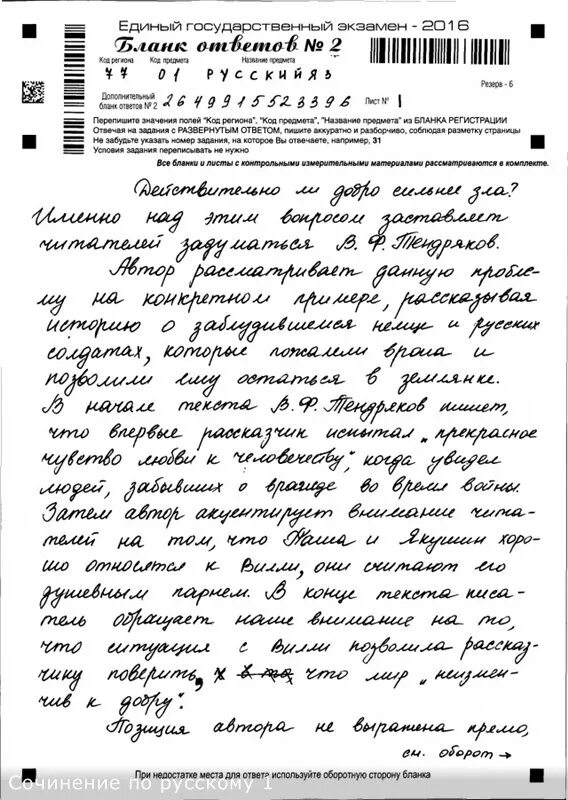 Единый государственный экзамен - 2016
Бланк ответов № 2
Код региона Код предмета Название предмета
77 01 РУССКИЙ ЯЗ
Резерв - 6
Дополнительный
бланк ответов № 2 2649915523396 Лист № 1
Перепишите значения полей "Код региона", "Код предмета", "Название предмета" из БЛАНКА РЕГИСТРАЦИИ
Отвечая на задания с РАЗВЕРНУТЫМ ОТВЕТОМ, пишите аккуратно и разборчиво, соблюдая разметку страницы
Не забудьте указать номер задания, на которое Вы отвечаете, например, 31
Условия задания переписывать не нужно
Все бланки и листы с контрольными измерительными материалами рассматриваются в комплекте.
Действительно ли добро сильнее зла?
Именно над этим вопросом заставляет
читателей задуматься В. Ф. Тендряков.
Автор рассматривает данную пробле-
му на конкретном примере, рассказывая
историю о заблудившемся немце и русских
солдатах, которые пожалели врага и
позволили ему остаться в землянке.
В начале текста В. Ф. Тендряков пишет,
что впервые рассказчик испытал „прекрасное
чувство любви к человечеству", когда увидел
людей, забывших о вражде во время войны.
Затем автор акцентирует внимание чита-
телей на том, что Паша и Якушин хоро-
шо относятся к Вилли, они считают его
душевным парнем. В конце текста писа-
тель обращает наше внимание на то,
что ситуация с Вилли позволила рассказ-
чику поверить, что мир „неизмен-
чив к добру".
Позиция автора не выражена прямо,
см. оборот →
При недостатке места для ответа используйте оборотную сторону бланка
Сочинение по русскому 1